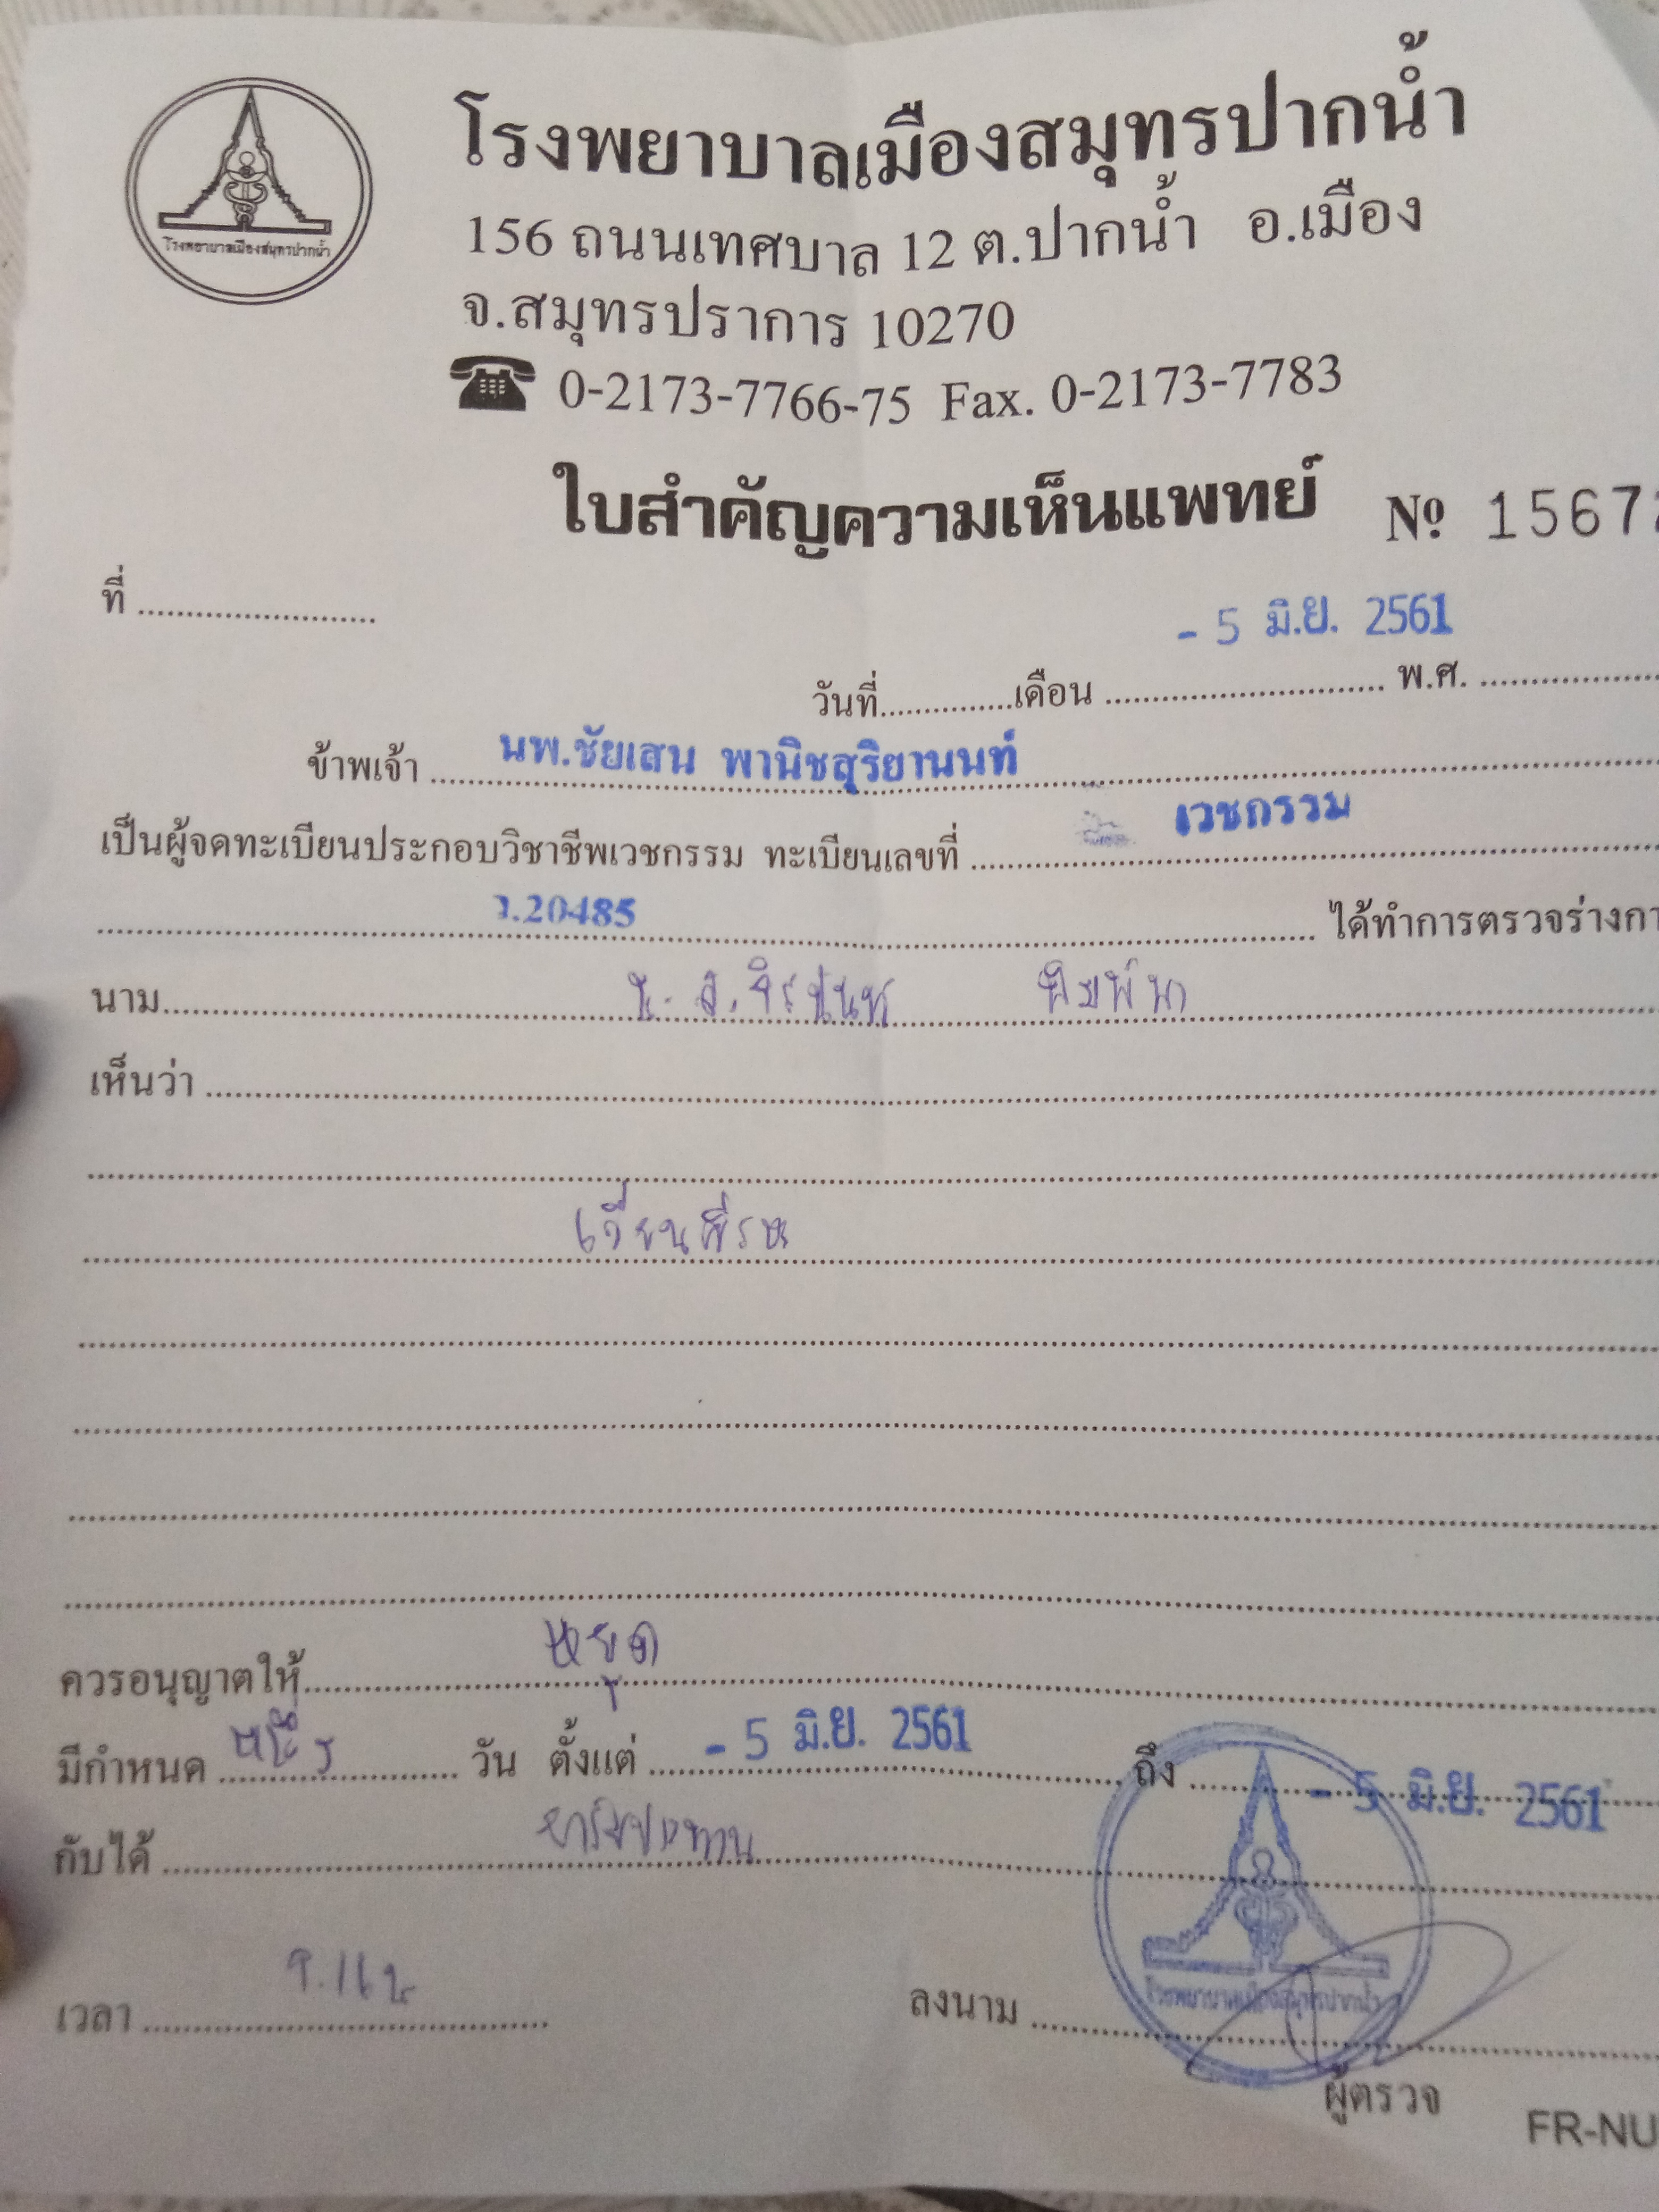 โรงพยาบาลเมืองสมุทรปากน้ำ
โรงพยาบาลเมืองสมุทรปากน้ำ
156 ถนนเทศบาล 12 ต.ปากน้ำ อ.เมือง
จ.สมุทรปราการ 10270
0-2173-7766-75 Fax. 0-2173-7783
ใบสำคัญความเห็นแพทย์ Nº 1567
ที่
- 5 มิ.ย. 2561
วันที่ เดือน พ.ศ.
ข้าพเจ้า นพ.ชัยเสน พานิชสุริยานนท์
เป็นผู้จดทะเบียนประกอบวิชาชีพเวชกรรม ทะเบียนเลขที่ เวชกรรม
ว.20485 ได้ทำการตรวจร่างกา
นาม น.ส.
เห็นว่า
เวียนศีรษะ
ควรอนุญาตให้ หยุด
มีกำหนด หนึ่ง วัน ตั้งแต่ - 5 มิ.ย. 2561 ถึง - 5 มิ.ย. 2561
กับได้ ยารับประทาน
โรงพยาบาลเมืองสมุทรปากน้ำ
เวลา ลงนาม
ผู้ตรวจ
FR-NU